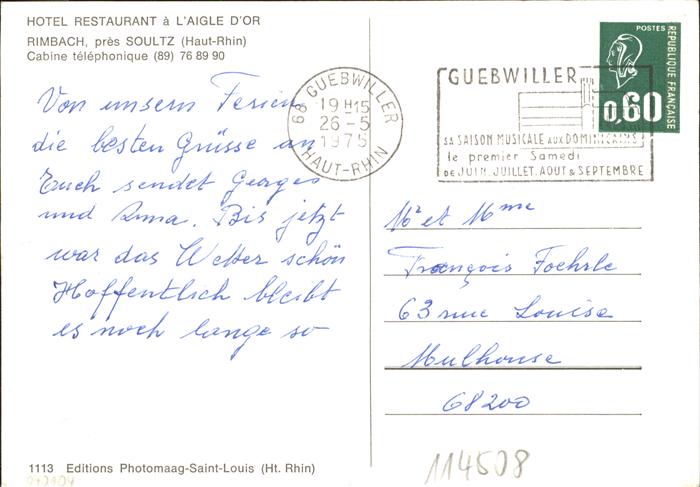 HOTEL RESTAURANT à L'AIGLE D'OR
RIMBACH, près SOULTZ (Haut-Rhin)
Cabine téléphonique (89) 76 89 90
Von unsern Ferien
die besten Grüsse an
Euch sendet Georges
und Anna. Bis jetzt
war das Wetter schön
Hoffentlich bleibt
es noch lange so
68 GUEBWILLER
19 H15
26 - 5
1975
HAUT-RHIN
GUEBWILLER
SA SAISON MUSICALE AUX DOMINICAINS
le premier Samedi
DE JUIN, JUILLET, AOUT & SEPTEMBRE
POSTES
REPUBLIQUE FRANÇAISE
0,60
Mr et Mme
François Foehrle
63 rue Louise
Mulhouse
68200
1113 Editions Photomaag-Saint-Louis (Ht. Rhin)
114508